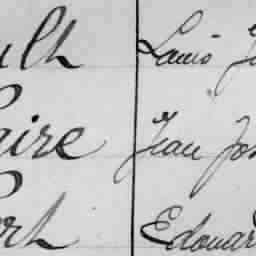 ulh Louis J
aire Jean Jos
ort Edouar